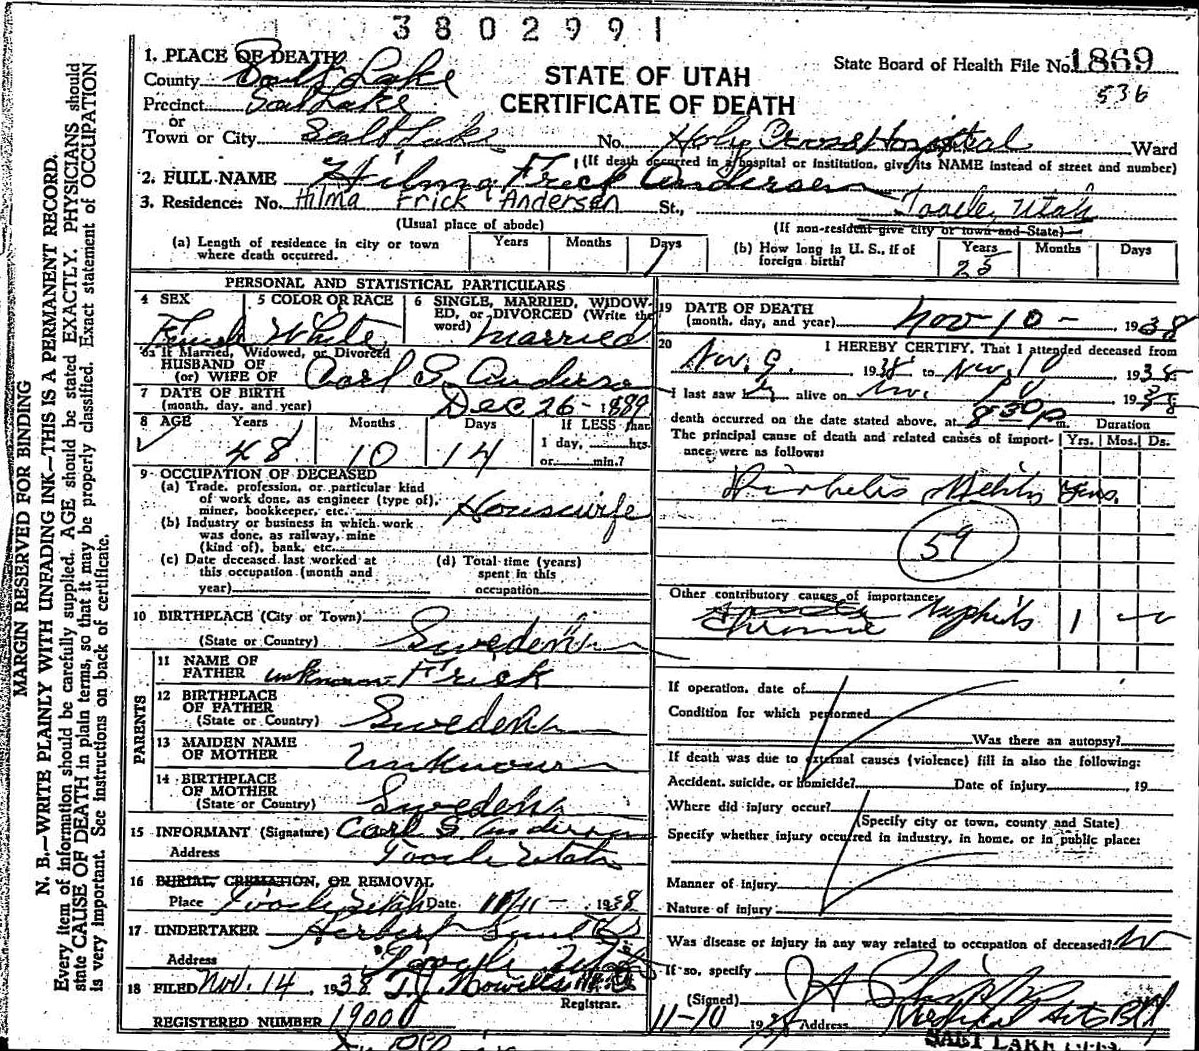 3802991
1. PLACE OF DEATH
County Salt Lake
Precinct Salt Lake
or
Town or City Salt Lake No. Holy Cross Hospital Ward
(If death occurred in a hospital or institution, give its NAME instead of street and number)
STATE OF UTAH
CERTIFICATE OF DEATH
State Board of Health File No. 1869
536
2. FULL NAME Hilma Frick Andersen
3. Residence: No. Hilma Frick Andersen St., Tooele, Utah
(Usual place of abode) (If non-resident give city or town and State)
(a) Length of residence in city or town where death occurred. Years Months Days 1
(b) How long in U. S., if of foreign birth? Years 25 Months Days
PERSONAL AND STATISTICAL PARTICULARS
4 SEX Female
5 COLOR OR RACE White
6 SINGLE, MARRIED, WIDOWED, or DIVORCED (Write the word) Married
6a If Married, Widowed, or Divorced
HUSBAND OF
(or) WIFE OF Carl S. Anderson
7 DATE OF BIRTH
(month, day, and year) Dec 26 - 1889
8 AGE Years 48 Months 10 Days 14 If LESS than
1 day, hrs.
or min.?
9 OCCUPATION OF DECEASED
(a) Trade, profession, or particular kind
of work done, as engineer (type of),
miner, bookkeeper, etc. Housewife
(b) Industry or business in which work
was done, as railway, mine
(kind of), bank, etc.
(c) Date deceased last worked at
this occupation (month and
year)
(d) Total time (years)
spent in this
occupation
10 BIRTHPLACE (City or Town)
(State or Country) Sweden
PARENTS
11 NAME OF
FATHER unknown Frick
12 BIRTHPLACE
OF FATHER
(State or Country) Sweden
13 MAIDEN NAME
OF MOTHER Unknown
14 BIRTHPLACE
OF MOTHER
(State or Country) Sweden
15 INFORMANT (Signature) Carl S. Anderson
Address Tooele Utah
16 BURIAL, CREMATION, OR REMOVAL
Place Tooele Utah Date 11/11- 1938
17 UNDERTAKER Herbert
Address Tooele Utah
18 FILED Nov. 14 1938 T.J. Howells
Registrar.
REGISTERED NUMBER 1900
19 DATE OF DEATH
(month, day, and year) Nov-10- 1938
20 I HEREBY CERTIFY, That I attended deceased from
Nov. 9 1938 to Nov. 10 1938
I last saw alive on Nov. 10 1938
death occurred on the date stated above, at 8:30 p m.
The principal cause of death and related causes of importance were as follows:
Duration
Yrs. Mos. Ds.
Diabetis Melitis yrs.
59
Other contributory causes of importance:
Chronic Nephritis 1
If operation, date of
Condition for which performed
Was there an autopsy?
If death was due to external causes (violence) fill in also the following:
Accident, suicide, or homicide? Date of injury 19
Where did injury occur?
(Specify city or town, county and State)
Specify whether injury occurred in industry, in home, or in public place:
Manner of injury
Nature of injury
Was disease or injury in any way related to occupation of deceased? No
If so, specify
(Signed)
11-10 1938 Address Medical Arts Bld
SALT LAKE CITY
MARGIN RESERVED FOR BINDING
N. B.—WRITE PLAINLY WITH UNFADING INK—THIS IS A PERMANENT RECORD.
Every item of information should be carefully supplied. AGE should be stated EXACTLY. PHYSICIANS should
state CAUSE OF DEATH in plain terms, so that it may be properly classified. Exact statement of OCCUPATION
is very important. See instructions on back of certificate.